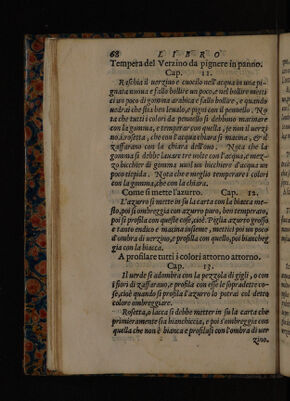 68 LIBRO
Tempera del Verzino da pignere in panno.
Cap. 11.
Raschia il uerzino e cuocilo nell'acqua in una pi-
gnatta nuoua e fallo bollire un poco, e nel bollire metti
ci un poco di gomma arabica e fallo bollire, e quando
uedrai che stia ben leualo, e pigni con il pennello. No
ta che tutti i colori da pennello si debbono macinare
con la gomma, e temperar con quella, se non il uerzi
no, i rosetta, che con l'acqua chiara si macina, & il
zaffarano con la chiara dell'ouo. Nota che la
gomma si debbe lauare tre uolte con l'acqua, e mez-
zo bicchier di gomma uuol un bicchiere d'acqua un
poco tiepida. Nota che e meglio temperare i colori
con la gomma, che con la chiara.
Come si mette l'azurro. Cap. 12.
L'azurro si mette in su la carta con la biacca me-
sto, poi si ombreggia con azurro puro, ben temperato,
poi si profila con queste cose, cioè. Piglia azurro grosso
e tanto endico e macina insieme, mettici poi un poco
d'ombra di uerzino, e profila con quello, poi biancheg
gia con la biacca.
A profilare tutti i colori attorno attorno.
Cap. 13.
Il uerde si adombra con la pezzola di gigli, o con
i fiori di zaffarano, e profila con esse le sopradette co-
se, cioè quando si profila l'azurro lo potrai col detto
colore ombreggiare.
Rosetta, o lacca si debbe metter in su la carta che
primieramente sia bianchiccia, e poi s'ombreggia con
quella che non è bianca e profilasi con l'ombra di uer
zino.